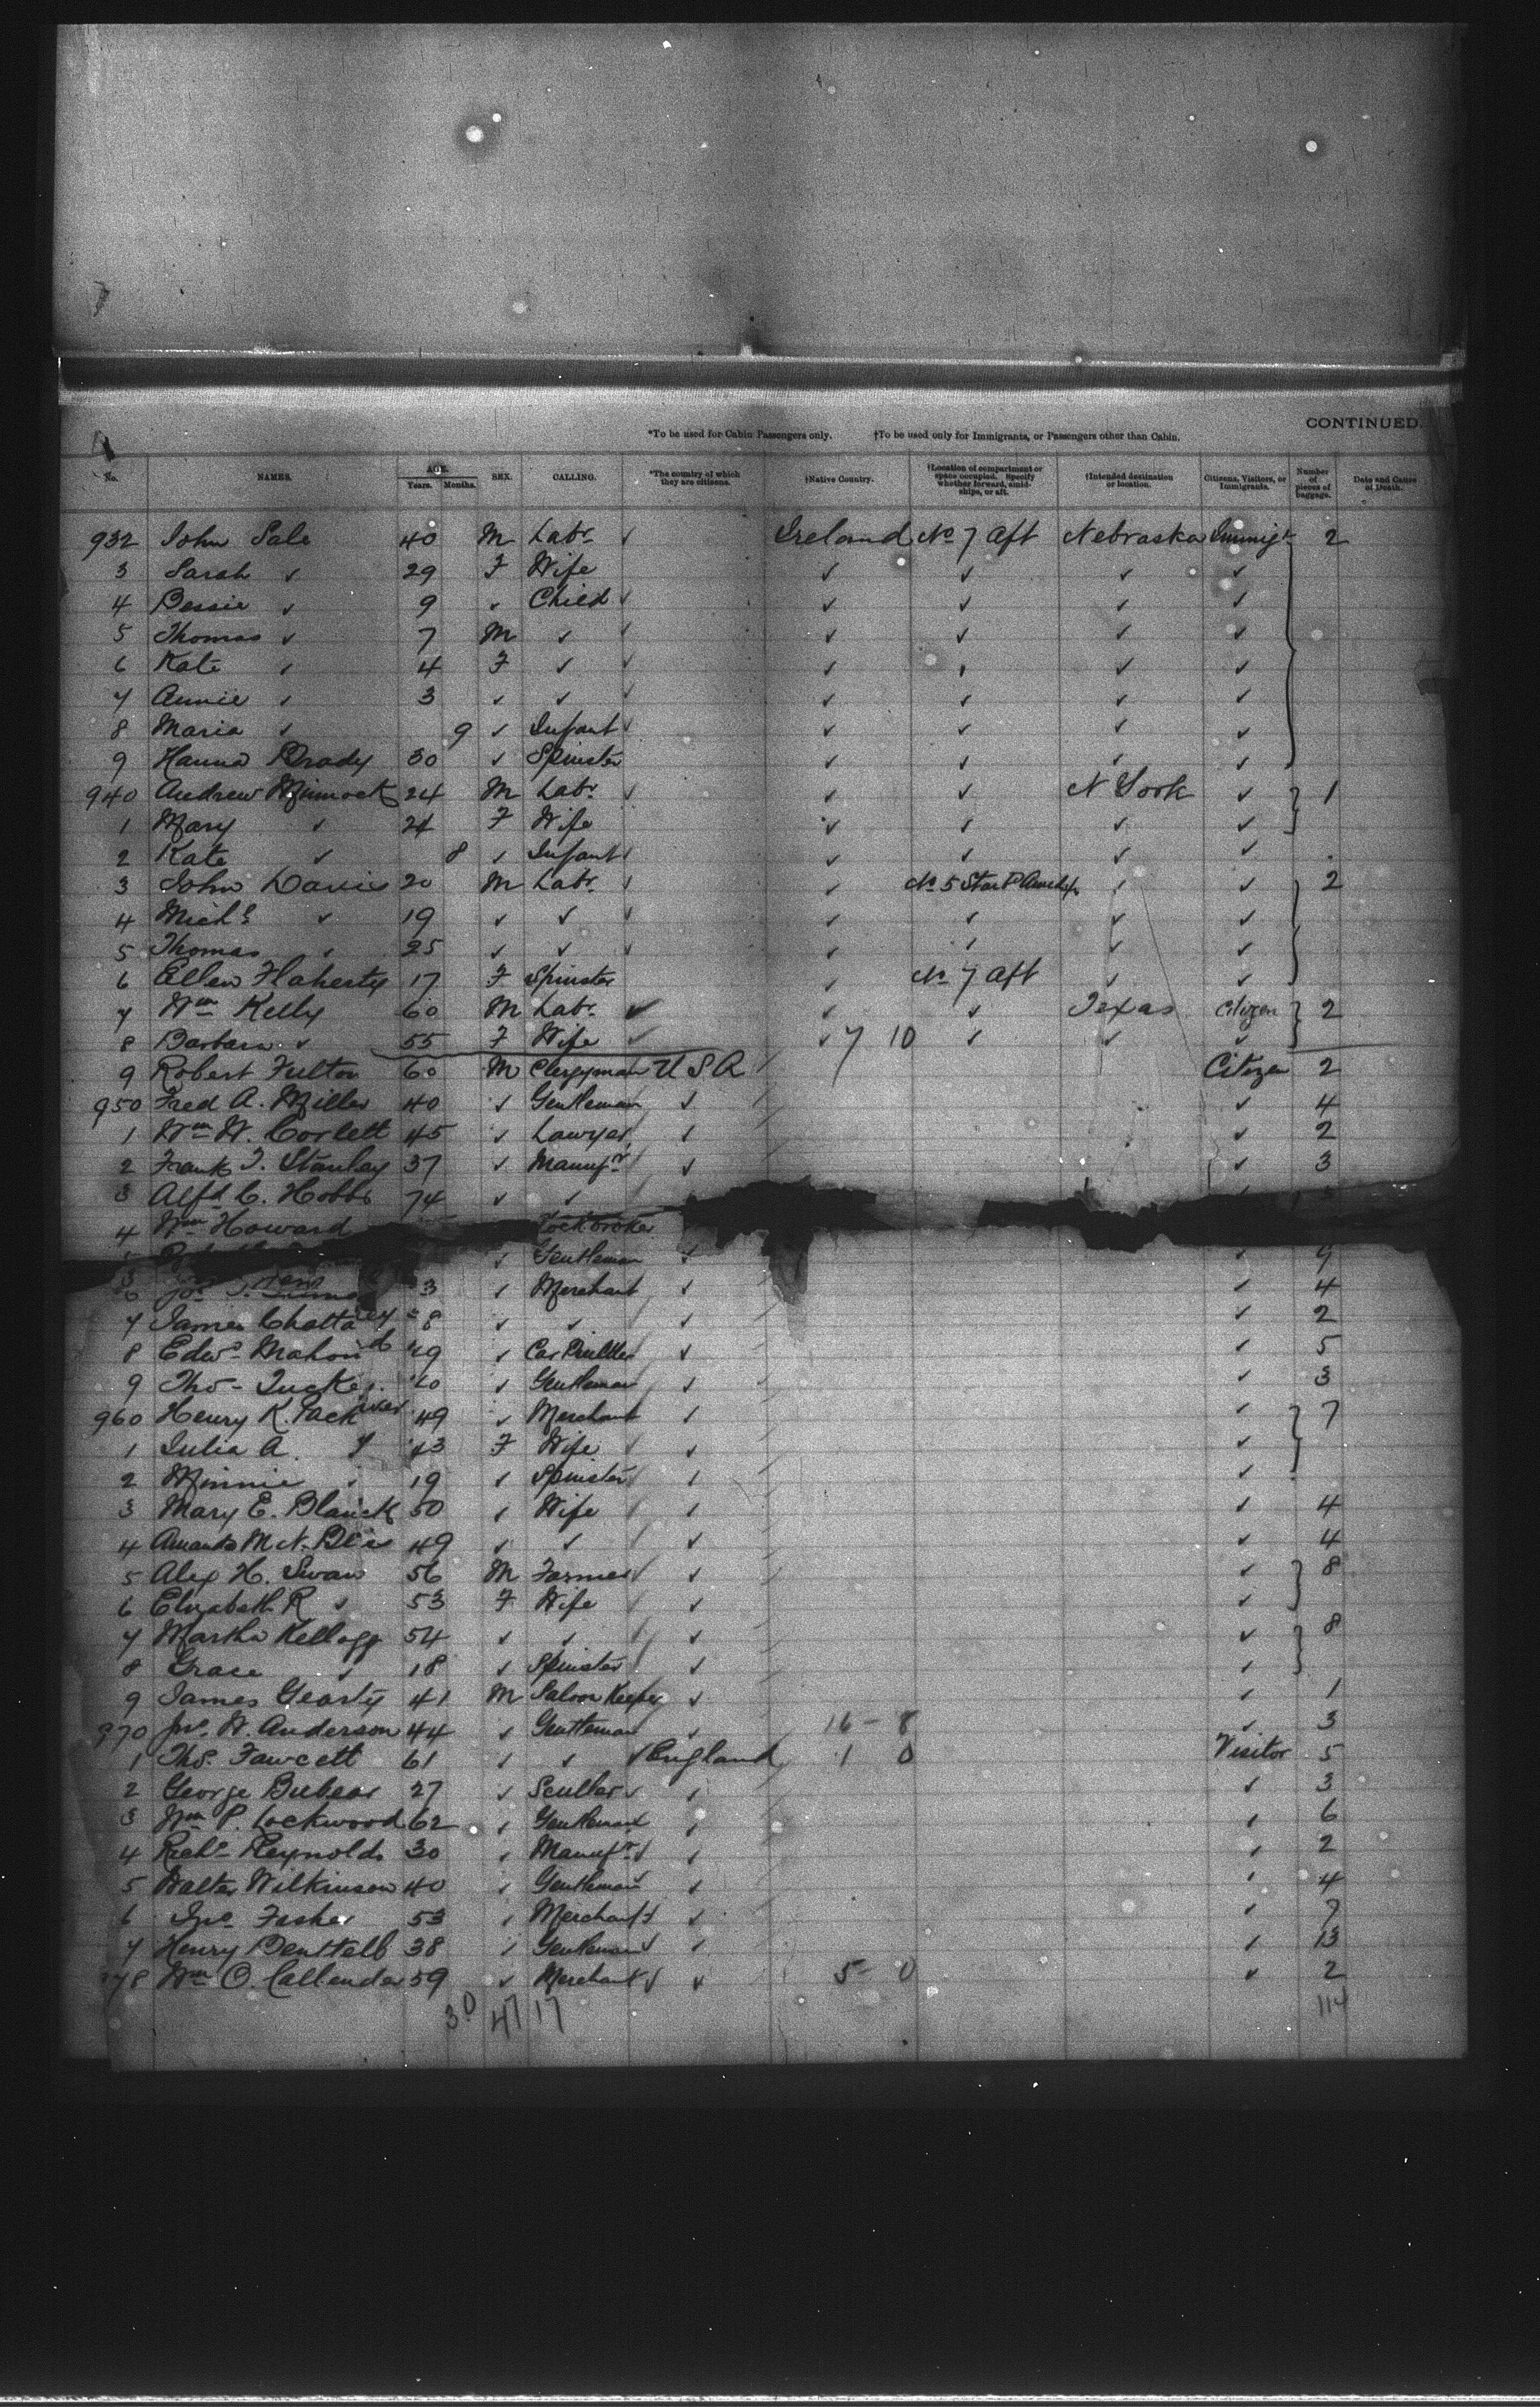 CONTINUED.
*To be used for Cabin Passengers only. †To be used only for Immigrants, or Passengers other than Cabin.
No. NAMES. AGE. Years. Months. SEX. CALLING. *The country of which they are citizens. †Native Country. †Location of compartment or space occupied. Specify whether forward, amidships, or aft. †Intended destination or location. Citizens, Visitors, or Immigrants. Number of pieces of baggage. Date and Cause of Death.
932 John Sale 40 M Labr ✓ Ireland No 7 aft Nebraska Immigt 2
3 Sarah ✓ 29 F Wife ✓ ✓ ✓ ✓
4 Bessie ✓ 9 ✓ Child ✓ ✓ ✓ ✓ ✓
5 Thomas ✓ 7 M ✓ ✓ ✓ ✓ ✓ ✓
6 Kate ✓ 4 F ✓ ✓ ✓ ✓ ✓ ✓
7 Annie ✓ 3 ✓ ✓ ✓ ✓ ✓ ✓ ✓
8 Maria ✓ 9 ✓ Infant ✓ ✓ ✓ ✓ ✓
9 Hanna Brady 30 ✓ Spinster ✓ ✓ ✓ ✓
940 Andrew Minnock 24 M Labr ✓ ✓ ✓ N York ✓ 1
1 Mary ✓ 24 F Wife ✓ ✓ ✓ ✓
2 Kate ✓ 8 ✓ Infant ✓ ✓ ✓ ✓ ✓
3 John Davis 20 M Labr ✓ ✓ No 5 Starbd ✓ ✓ 2
4 Michl ✓ 19 ✓ ✓ ✓ ✓ ✓ ✓ ✓
5 Thomas ✓ 25 ✓ ✓ ✓ ✓ ✓ ✓ ✓
6 Ellen Flaherty 17 F Spinster ✓ No 7 aft ✓ ✓
7 Wm Kelly 60 M Labr ✓ ✓ ✓ Texas Citizen 2
8 Barbara ✓ 55 F Wife ✓ ✓ 7 10 ✓ ✓ ✓
9 Robert Fulton 60 M Clergyman U S A Citizen 2
950 Fred A. Miller 40 ✓ Gentleman ✓ ✓ 4
1 Wm W. Corlett 45 ✓ Lawyer ✓ ✓ 2
2 Frank T. Stanley 37 ✓ Manufr ✓ ✓ 3
3 Alfd C. Hobbs 74 ✓ ✓
4 Wm Howard
✓ Gentleman ✓ ✓ 9
6 Jos 3 ✓ Merchant ✓ 4
7 James Chatta 8 ✓ ✓ ✓ ✓ 2
8 Edwd Mahon 49 ✓ Car Builder ✓ ✓ 5
9 Thos Tucker 40 ✓ Gentleman ✓ ✓ 3
960 Henry K. 49 ✓ Merchant ✓ ✓ 7
1 Julia A. 43 F Wife ✓ ✓
2 Minnie ✓ 19 ✓ Spinster ✓ ✓
3 Mary E. Blanck 50 ✓ Wife ✓ ✓ 4
4 Amanda McN. 49 ✓ ✓ ✓ ✓ 4
5 Alex H. Swan 56 M Farmer ✓ ✓ 8
6 Elizabeth R ✓ 53 F Wife ✓ ✓
7 Martha Kellogg 54 ✓ ✓ ✓ ✓ 8
8 Grace ✓ 18 ✓ Spinster ✓ ✓
9 James Gearty 41 M Saloon Keeper ✓ ✓ 1
970 Jno W. Anderson 44 ✓ Gentleman ✓ 16 - 8 ✓ 3
1 Thos Fawcett 61 ✓ ✓ England 1 0 Visitor 5
2 George Bubear 27 ✓ Sculler ✓ ✓ 3
3 Wm P. Lockwood 62 ✓ Gentleman ✓ ✓ 6
4 Richd Reynolds 30 ✓ Manufr ✓ ✓ 2
5 Walter Wilkinson 40 ✓ Gentleman ✓ ✓ 4
6 Jno Fisher 53 ✓ Merchant ✓ ✓ 7
7 Henry 38 ✓ Gentleman ✓ ✓ 13
978 Wm O. Callender 59 ✓ Merchant ✓ 5 - 0 ✓ 2
30 47 17 114